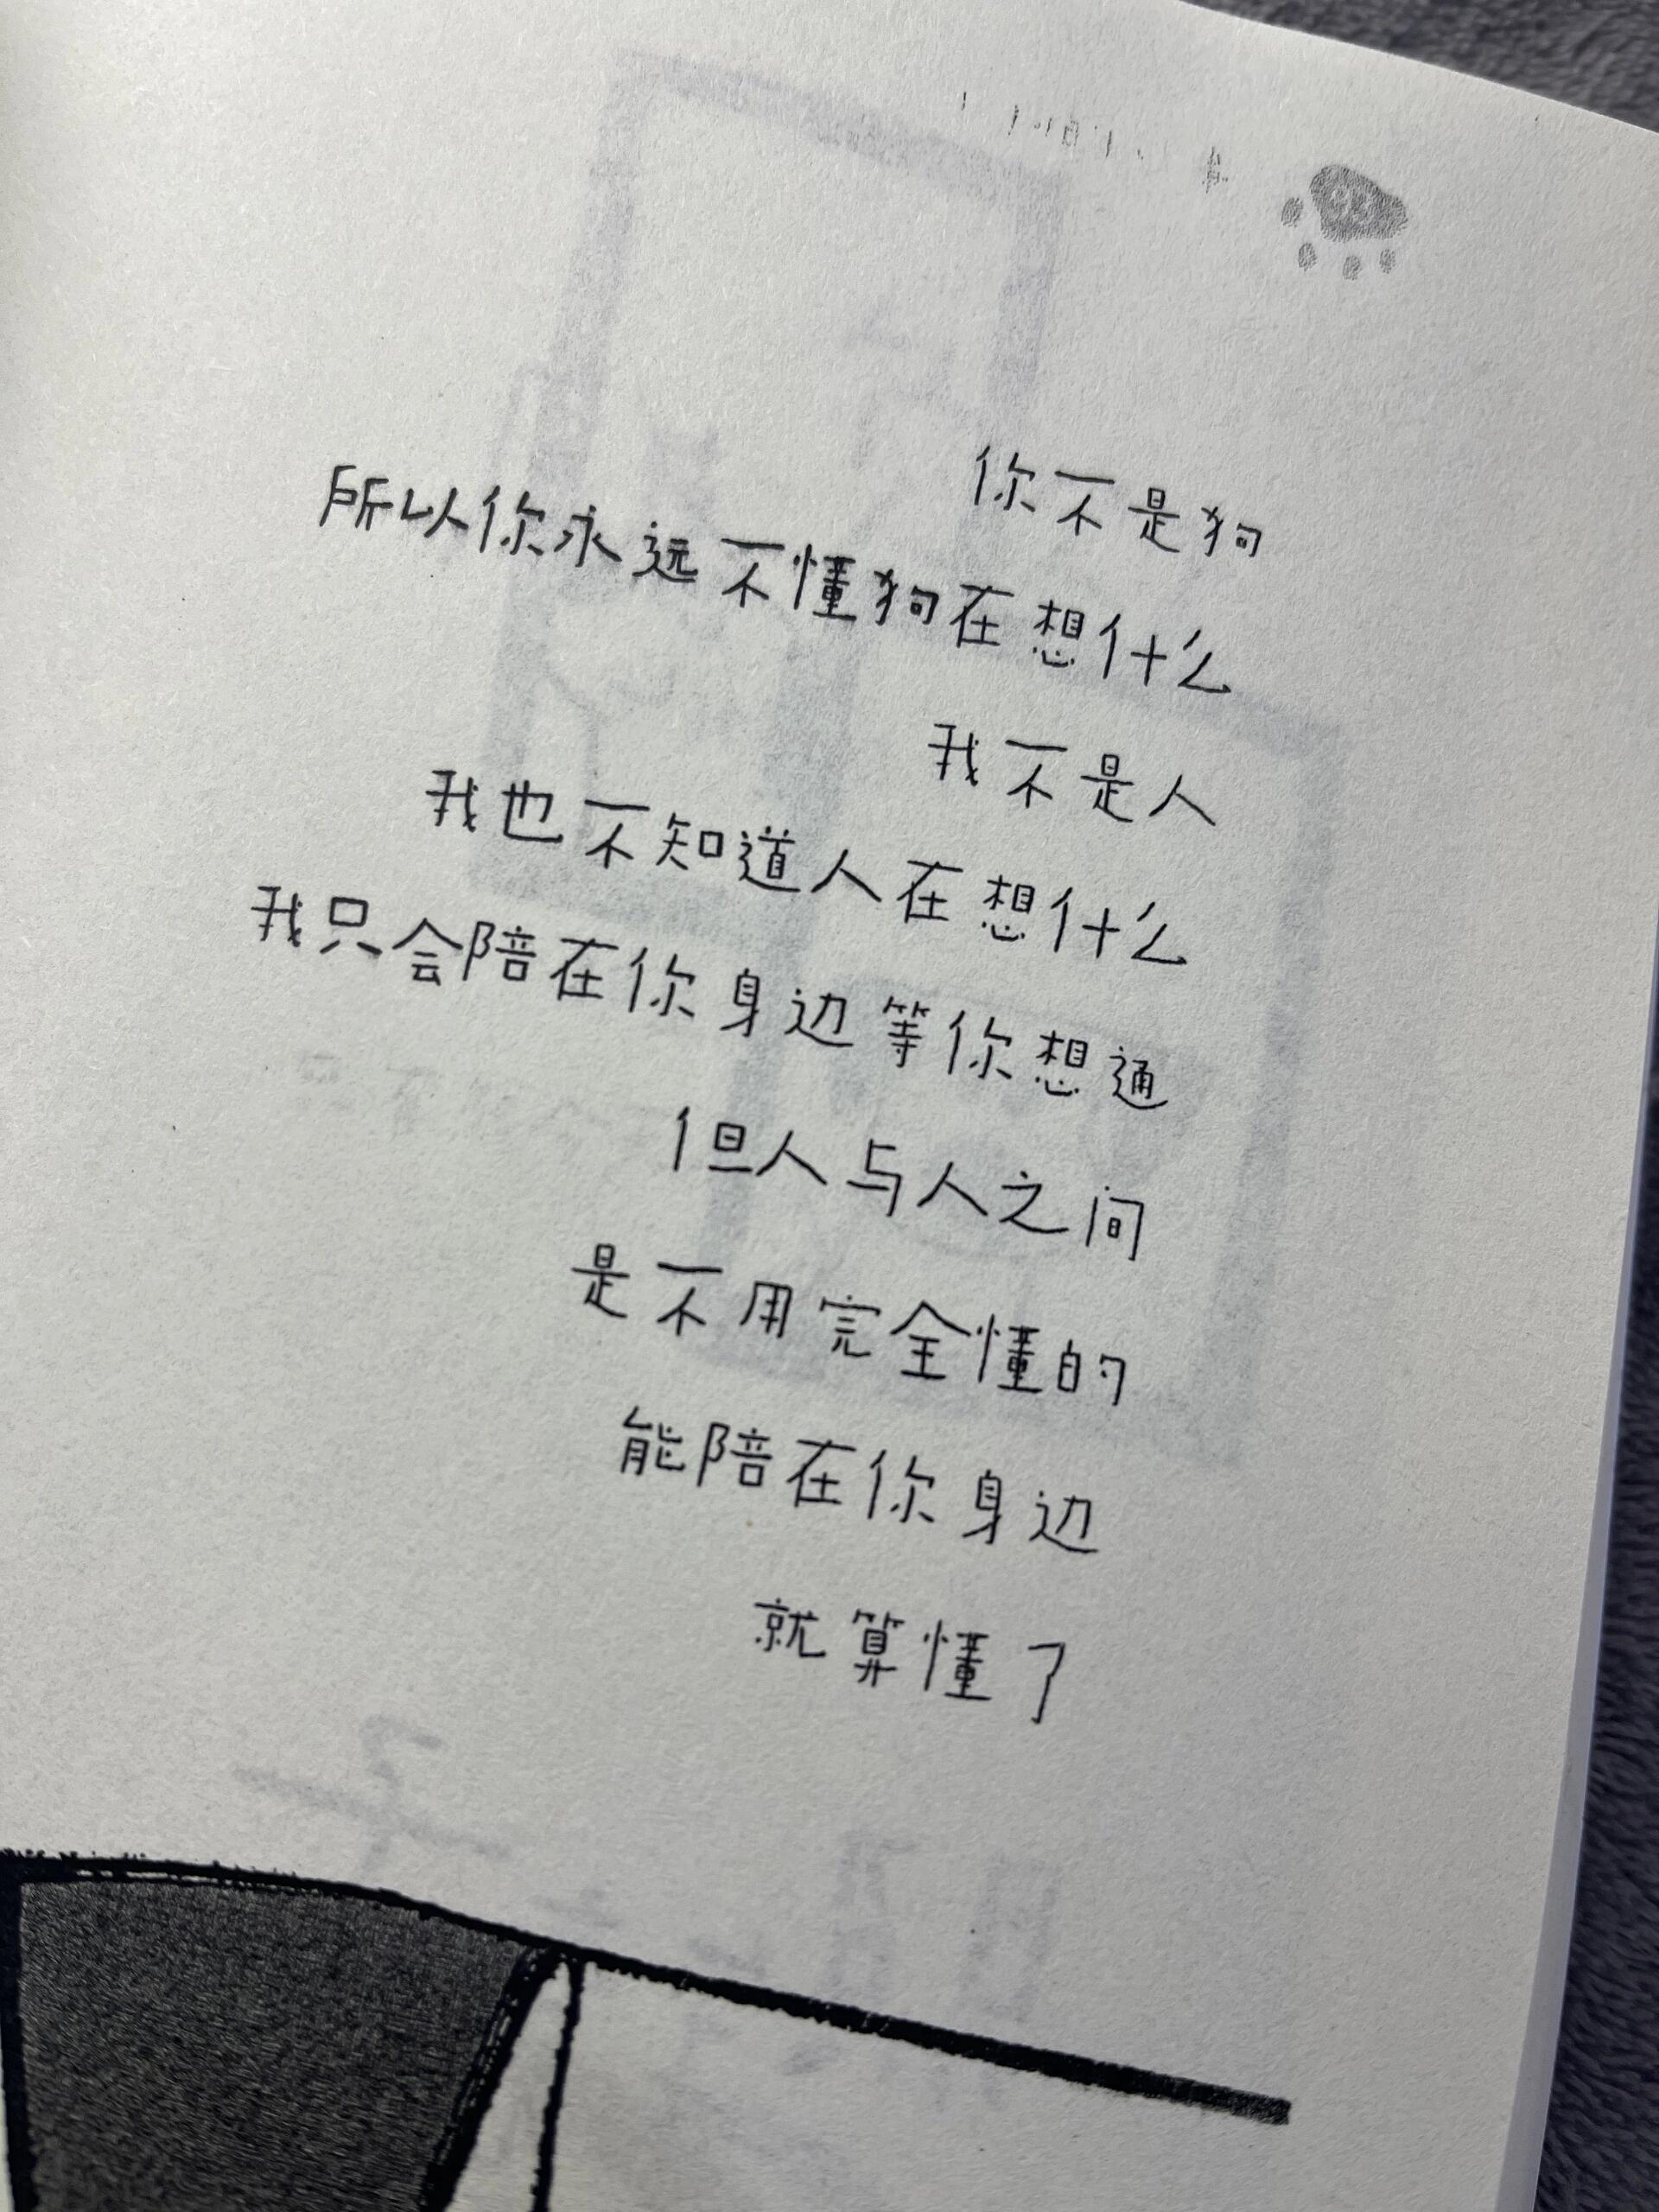 你不是狗
所以你永远不懂狗在想什么
我不是人
我也不知道人在想什么
我只会陪在你身边等你想通
但人与人之间
是不用完全懂的
能陪在你身边
就算懂了